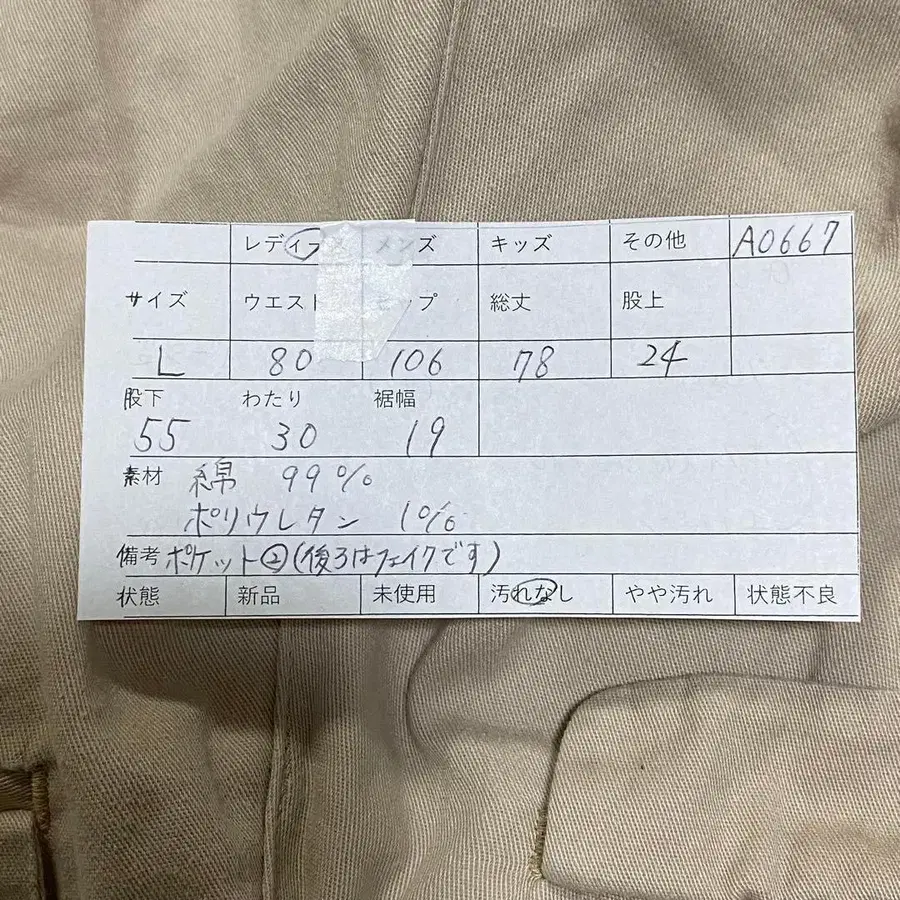 レディース メンズ キッズ その他 A0667
サイズ ウエスト ヒップ 総丈 股上
L 80 106 78 24
股下 わたり 裾幅
55 30 19
素材 綿 99%
ポリウレタン 1%
備考 ポケット②(後ろはフェイクです)
状態 新品 未使用 汚れなし やや汚れ 状態不良